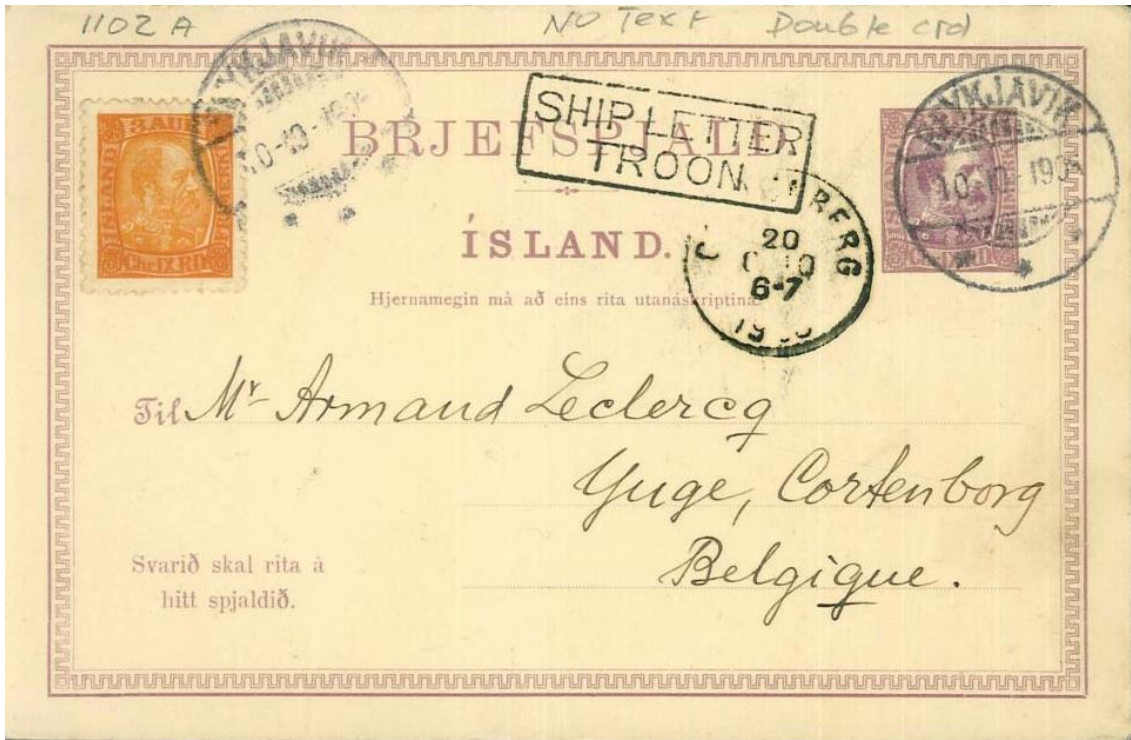 1102 A NO Text Double crd
REYKJAVIK
10-10-190
3 AUR
ISLAND
Chr.IX.R.D.
BRJEFSPJALD
SHIP LETTER
TROON
REYKJAVIK
10-10-190
Chr.IX.R.D.
ÍSLAND.
BERG
20
6-7
19
Hjernamegin má að eins rita utanáskriptina.
Til Mr Armand Leclercq
Yuge, Cortenborg
Belgique.
Svarið skal rita á
hitt spjaldið.